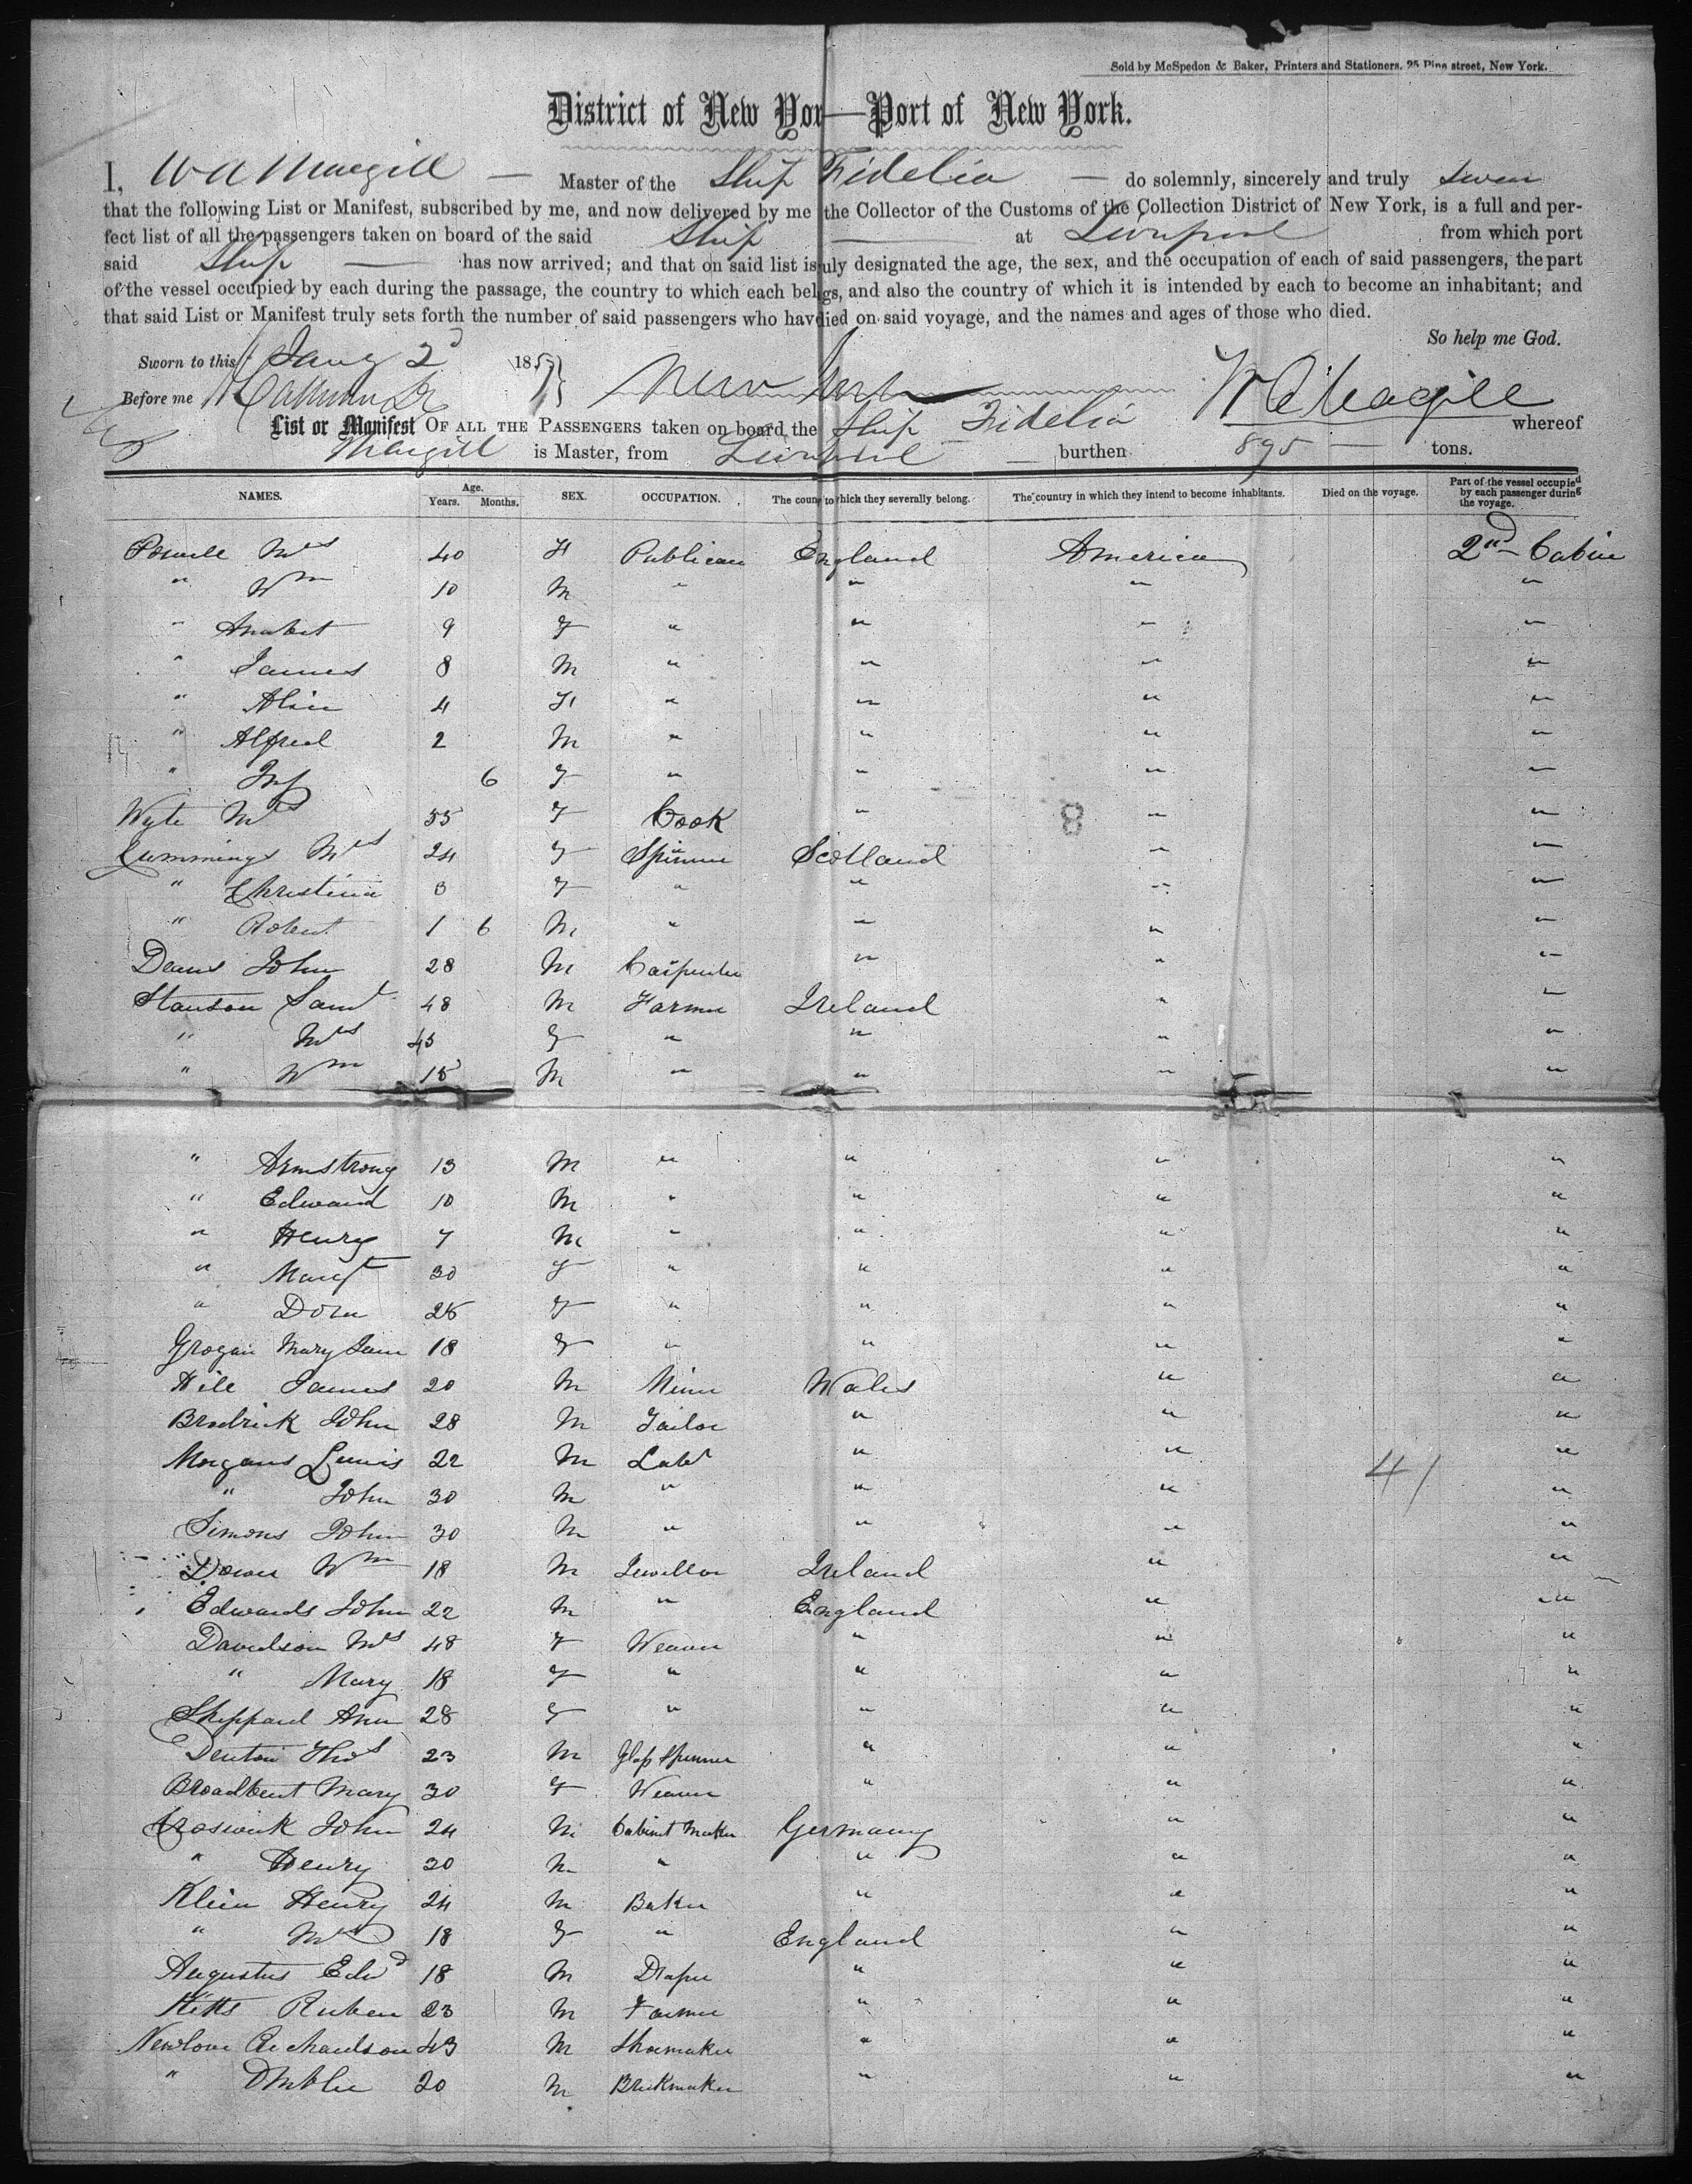 Sold by McSpedon & Baker, Printers and Stationers, 25 Pine street, New York.
District of New Yor—Port of New York.
I, W A Maegill — Master of the Ship Fidelia — do solemnly, sincerely and truly swear
that the following List or Manifest, subscribed by me, and now delivered by me the Collector of the Customs of the Collection District of New York, is a full and per-
fect list of all the passengers taken on board of the said Ship — at Liverpool from which port
said Ship — has now arrived; and that on said list is uly designated the age, the sex, and the occupation of each of said passengers, the part
of the vessel occupied by each during the passage, the country to which each belgs, and also the country of which it is intended by each to become an inhabitant; and
that said List or Manifest truly sets forth the number of said passengers who hav died on said voyage, and the names and ages of those who died.
So help me God.
Sworn to this Jany 2d 1857 } New York W A Maegill
Before me
List or Manifest OF ALL THE PASSENGERS taken on board the Ship Fidelia whereof
Maegill is Master, from Liverpool — burthen 895 — tons.
NAMES. Age. Years. Months. SEX. OCCUPATION. The coun to which they severally belong. The country in which they intend to become inhabitants. Died on the voyage. Part of the vessel occupied by each passenger during the voyage.
Powell Mrs 40 F Publican England America 2nd Cabin
" Wm 10 M " " " "
" 9 F " " " "
" James 8 M " " " "
" Alice 4 F " " " "
" Alfred 2 M " " " "
" Inf 6 F " " " "
Wyte Mrs 55 F Cook " " "
8
Cummings Mrs 24 F Spinner Scotland " "
" Christina 3 F " " " "
" Robert 1 6 M " " " "
Deans John 28 M Carpenter " " "
Stanton Saml 48 M Farmer Ireland " "
" Mrs 45 F " " " "
" Wm 15 M " " " "
" Armstrong 13 M " " " "
" Edward 10 M " " " "
" Henry 7 M " " " "
" Margt 30 F " " " "
" Dora 26 F " " " "
Grogan Mary Jane 18 F " " " "
Hill James 20 M Miner Wales " "
Brodrick John 28 M Tailor " " "
Morgans Lewis 22 M Labr " " "
41
" John 30 M " " " "
Simons John 30 M " " " "
Dower Wm 18 M Jeweller Ireland " "
Edwards John 22 M " England " "
Davidson Mrs 48 F Weaver " " "
" Mary 18 F " " " "
Sheppard Ann 28 F " " " "
Denton Thos 23 M Glass Spinner " " "
Broadbent Mary 30 F Weaver " " "
John 24 M Cabinet Maker Germany " "
" Henry 30 M " " " "
Klein Henry 24 M Baker " " "
" Mrs 18 F " England " "
Augustus Edwd 18 M Draper " " "
Kitts Ruben 23 M Farmer " " "
Newlove Richardson 43 M Shoemaker " " "
" 20 M Brickmaker " " "